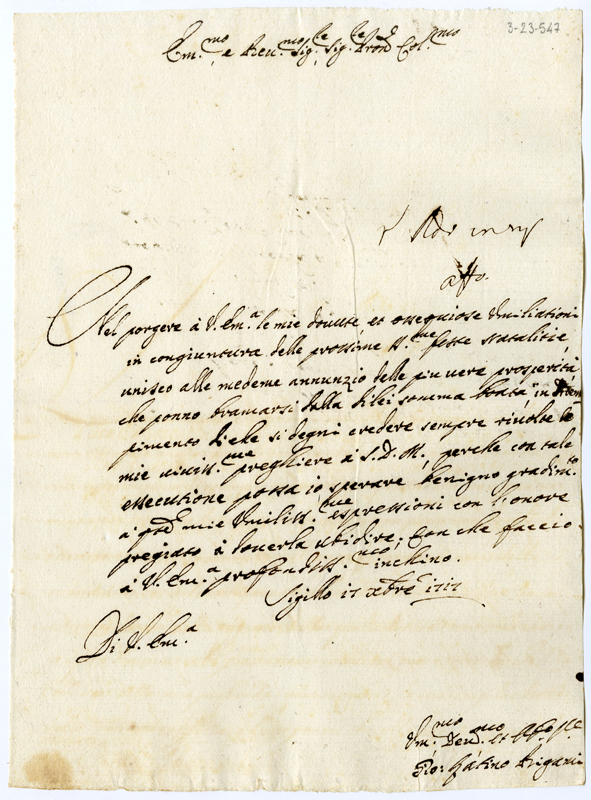 3-23-547
Em.mo e Reu.mo Sig.re Sig.re Pron Col.mo
affo.
Nel porgere à V. Em.a le mie douute, et ossequiose Vmiliationi
in congiuntura delle prossime S.me feste Natalitie,
unisco alle medeme annunzio delle piu uere prosperità,
che ponno bramarsi dalla di lei somma bontà, in
pimento di che si degni credere sempre riuolte le
mie uiuiss.me preghiere à S. D. M., perche con tale
essecutione possa io sperare benigno gradim.to
a qste mie Vmiliss.me espressioni con l'onore
pregiato à douerla ubidire; Con che faccio
à V. Em.a profondiss.mo inchino.
Sigillo 17 xbre 1717
Di V. Em.a
Vm.mo Deu.mo et
Gio: